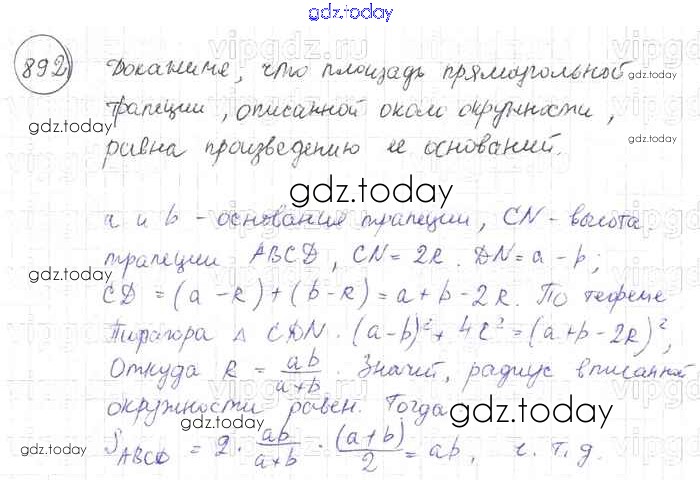 gdz.today
892 Докажите, что площадь прямоугольной
трапеции, описанной около окружности,
gdz.today
gdz.today
равна произведению её оснований.
gdz.today
a и b - основание трапеции, CN - высота
трапеции ABCD, CN = 2R. DN = a - b;
gdz.today
gdz.today
CD = (a - R) + (b - R) = a + b - 2R. По теореме
Пифагора △ CDN. (a-b)² + 4R² = (a+b-2R)²,
Откуда R = ab/(a+b). Значит, радиус вписанной
окружности равен. Тогда
gdz.today
gdz.today
S ABCD = 2 · ab/(a+b) · (a+b)/2 = ab, ч. т. д.
gdz.today